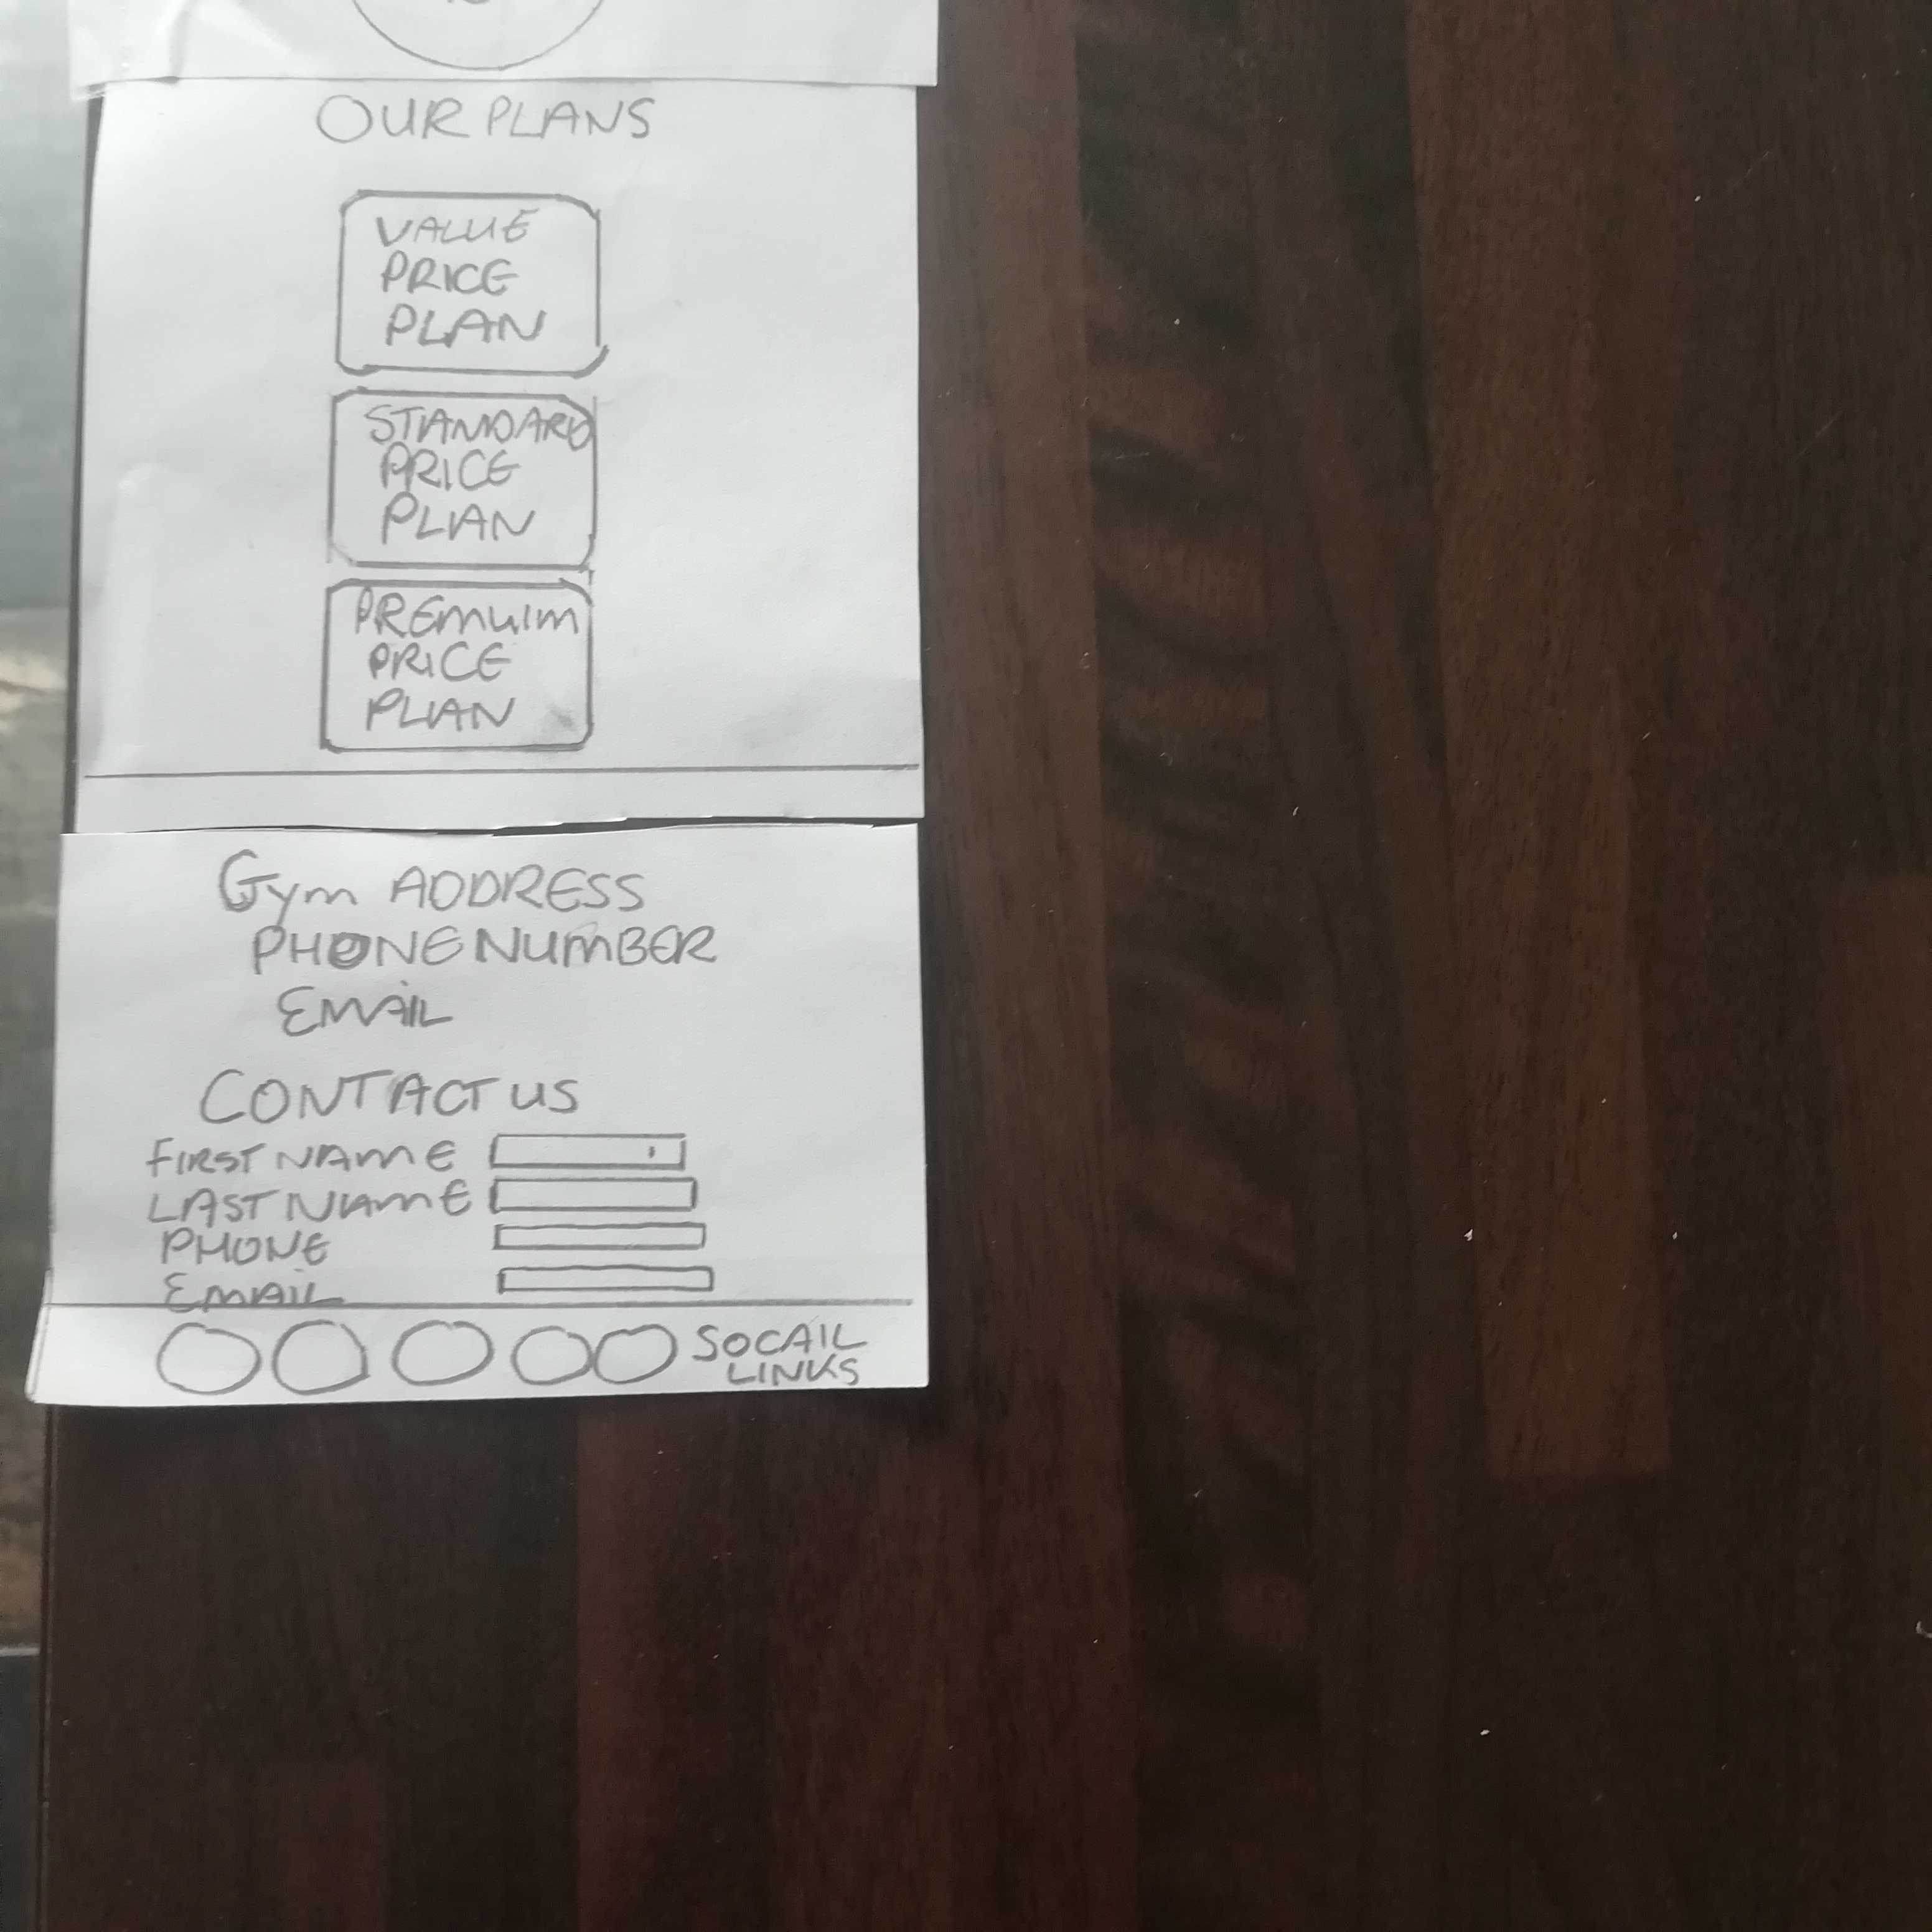 OUR PLANS
VALUE
PRICE
PLAN
STANDARD
PRICE
PLAN
PREMUIM
PRICE
PLAN
Gym ADDRESS
PHONE NUMBER
EMAIL
CONTACT US
FIRST NAME
LAST NAME
PHONE
EMAIL
SOCAIL
LINKS